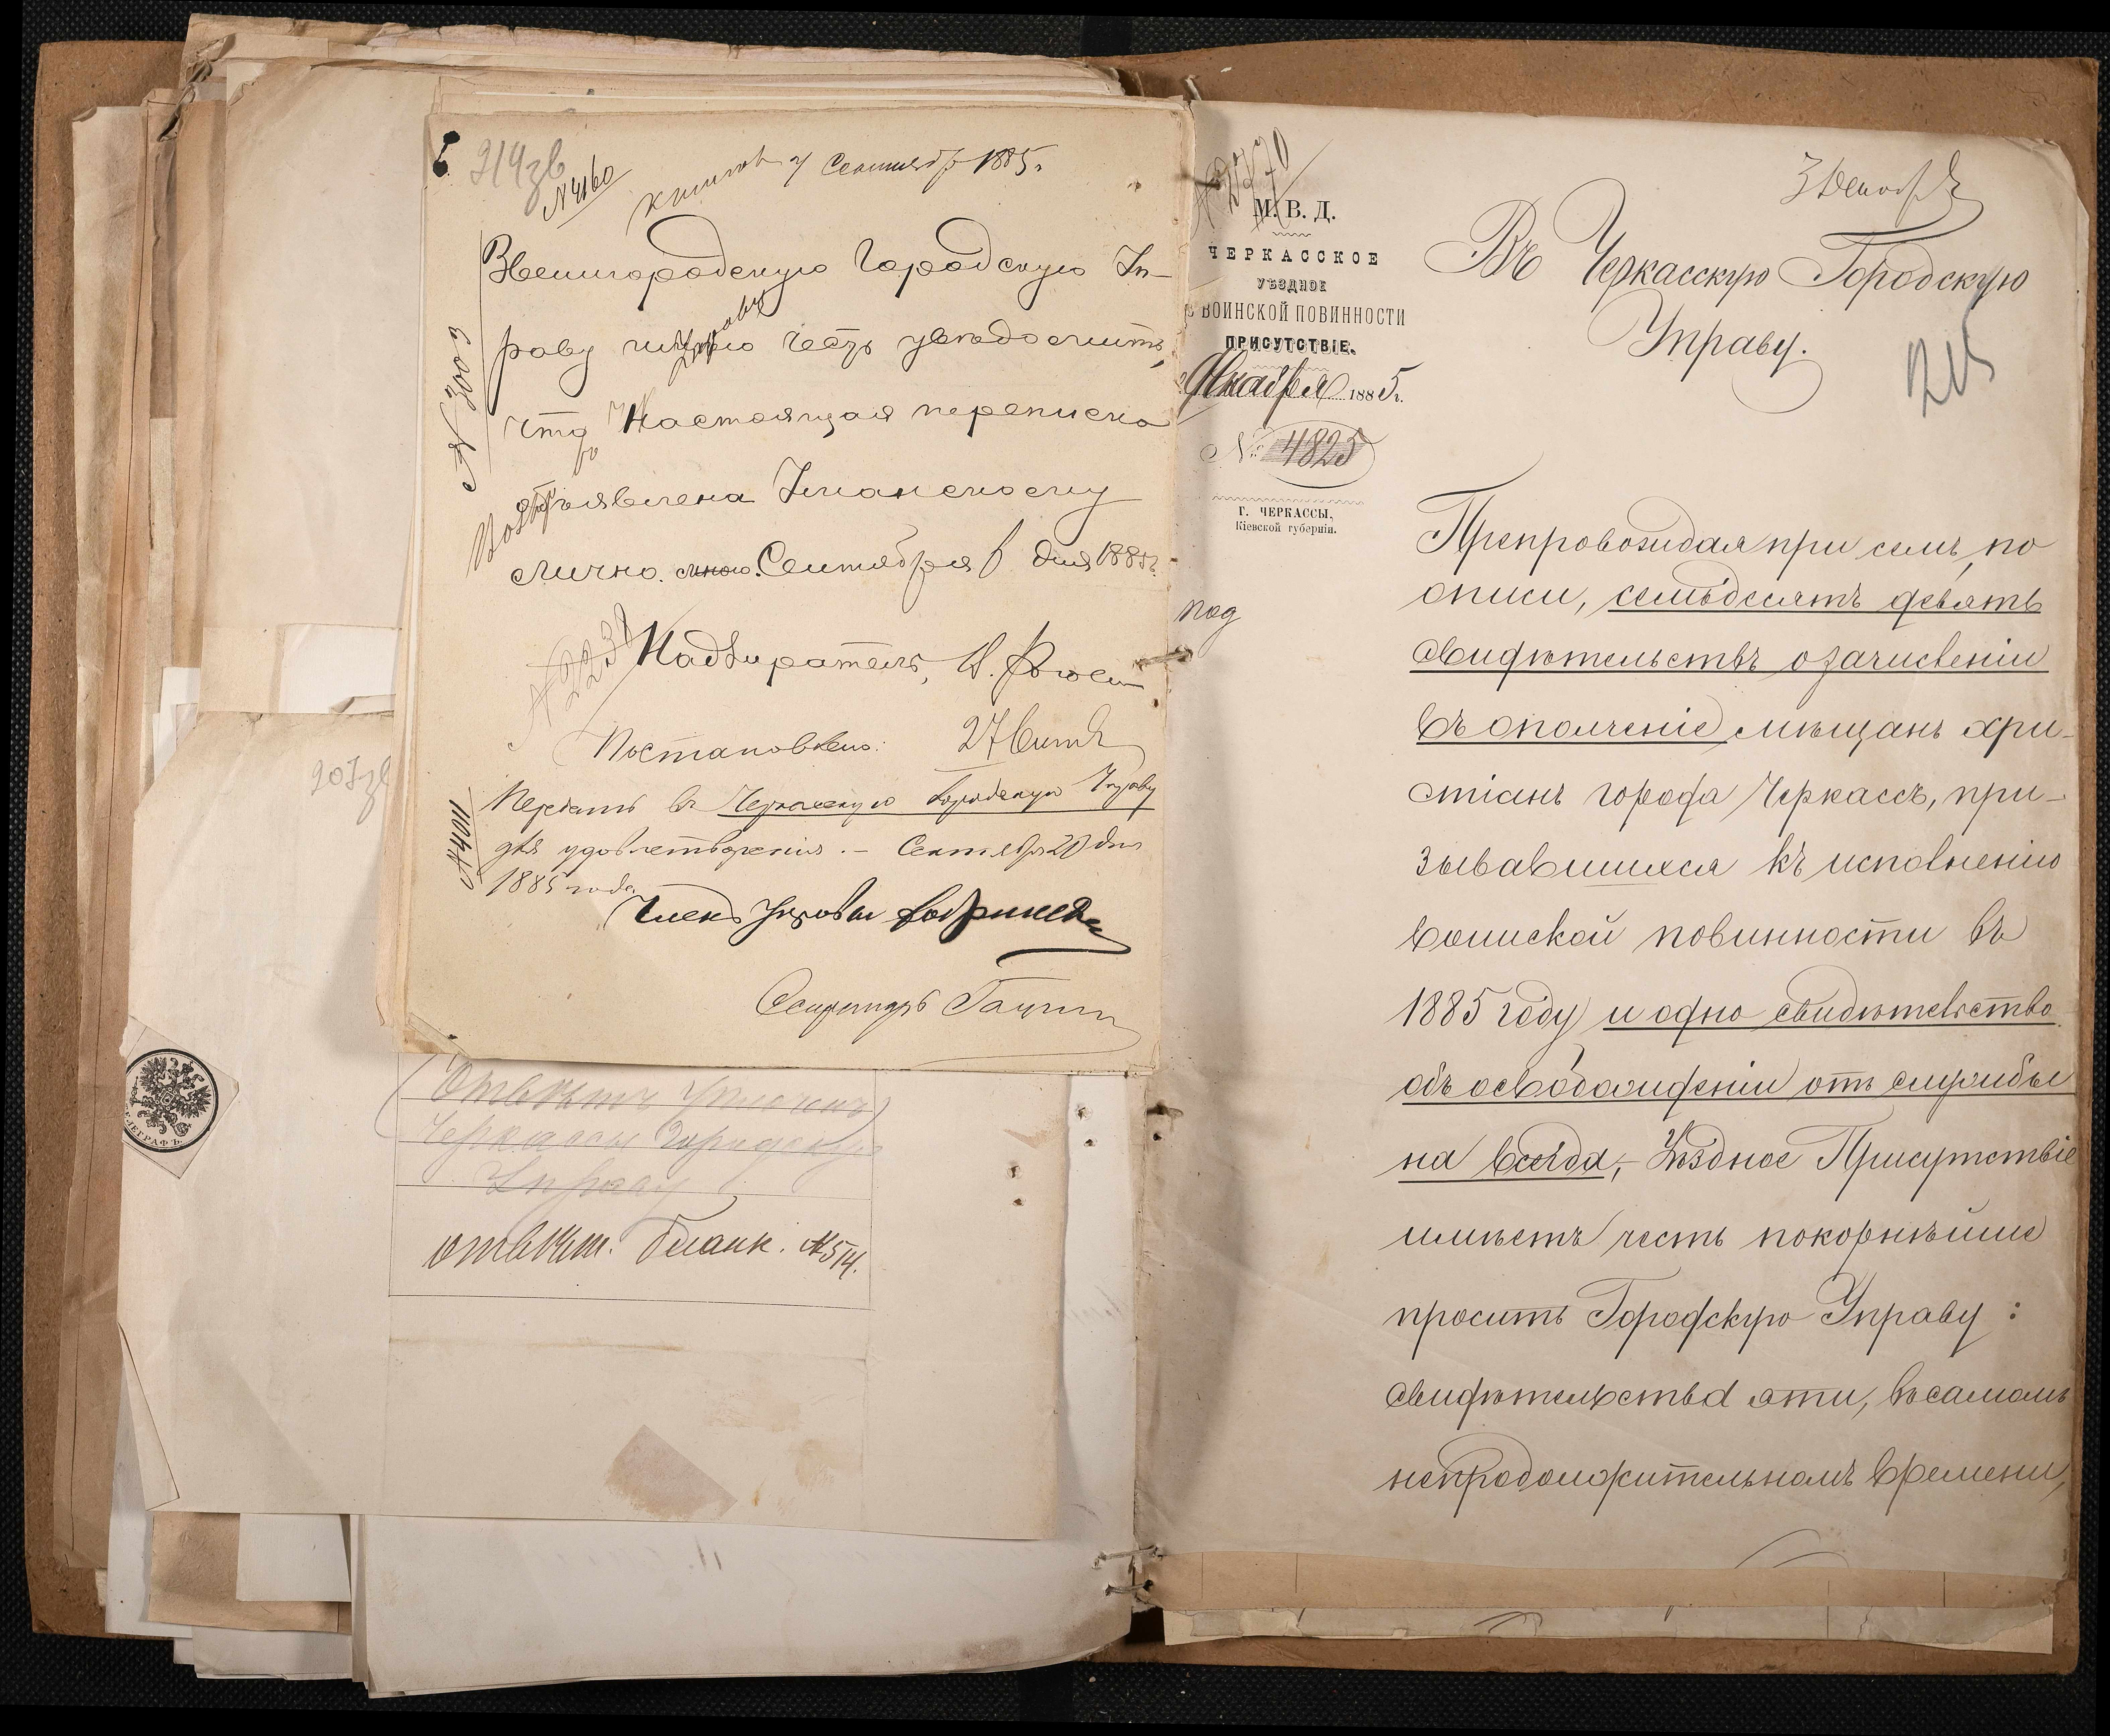 214зв
№4160
7 Сентября 1885 г.
Звенигородскую Городскую Уп-
раву имѣю честь увѣдомить,
что настоящая переписка
объявлена Уманскому
лично. Сентября 6 дня 1885 г.
№ 3003
Надзиратель,
Постановлено: 27 Сент
Передать въ Черкасскую Городскую Управу
для удовлетворенія. – Сентября 20 дня
1885 года
№4011
Членъ Управы
Секретарь
207зв
Отвѣтъ
Черкассы Городскую
Управу
отвѣт. бланк. №514.
М. В. Д.
ЧЕРКАССКОЕ
УѢЗДНОЕ
ВОИНСКОЙ ПОВИННОСТИ
ПРИСУТСТВІЕ.
Декабря 1885 г.
№ 4825
Г. ЧЕРКАССЫ,
Кіевской губерніи.
под
3 Декабря
Въ Черкасскую Городскую
Управу.
215
Препровождая при семъ, по
описи, семьдесятъ девять
свидѣтельствъ о зачисленіи
въ ополченіе мѣщанъ хри-
стіанъ города Черкассъ, при-
зывавшихся къ исполненію
воинской повинности въ
1885 году и одно свидѣтельство
объ освобожденіи отъ службы
на всегда, – Уѣздное Присутствіе
имѣетъ честь покорнѣйше
просить Городскую Управу:
свидѣтельства эти, въ самомъ
непродолжительномъ времени,